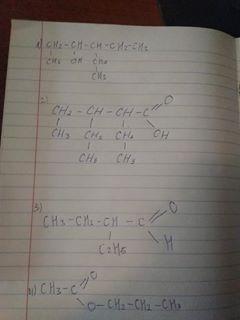 1) CH2-CH-CH-CH2-CH3
CH3 OH CH2
CH3
2)
CH2-CH-CH-C O
CH3 CH2 CH2 OH
CH3 CH3
3)
CH3-CH2-CH-C O
C2H5 H
4) CH3-C O
O-CH2-CH2-CH3